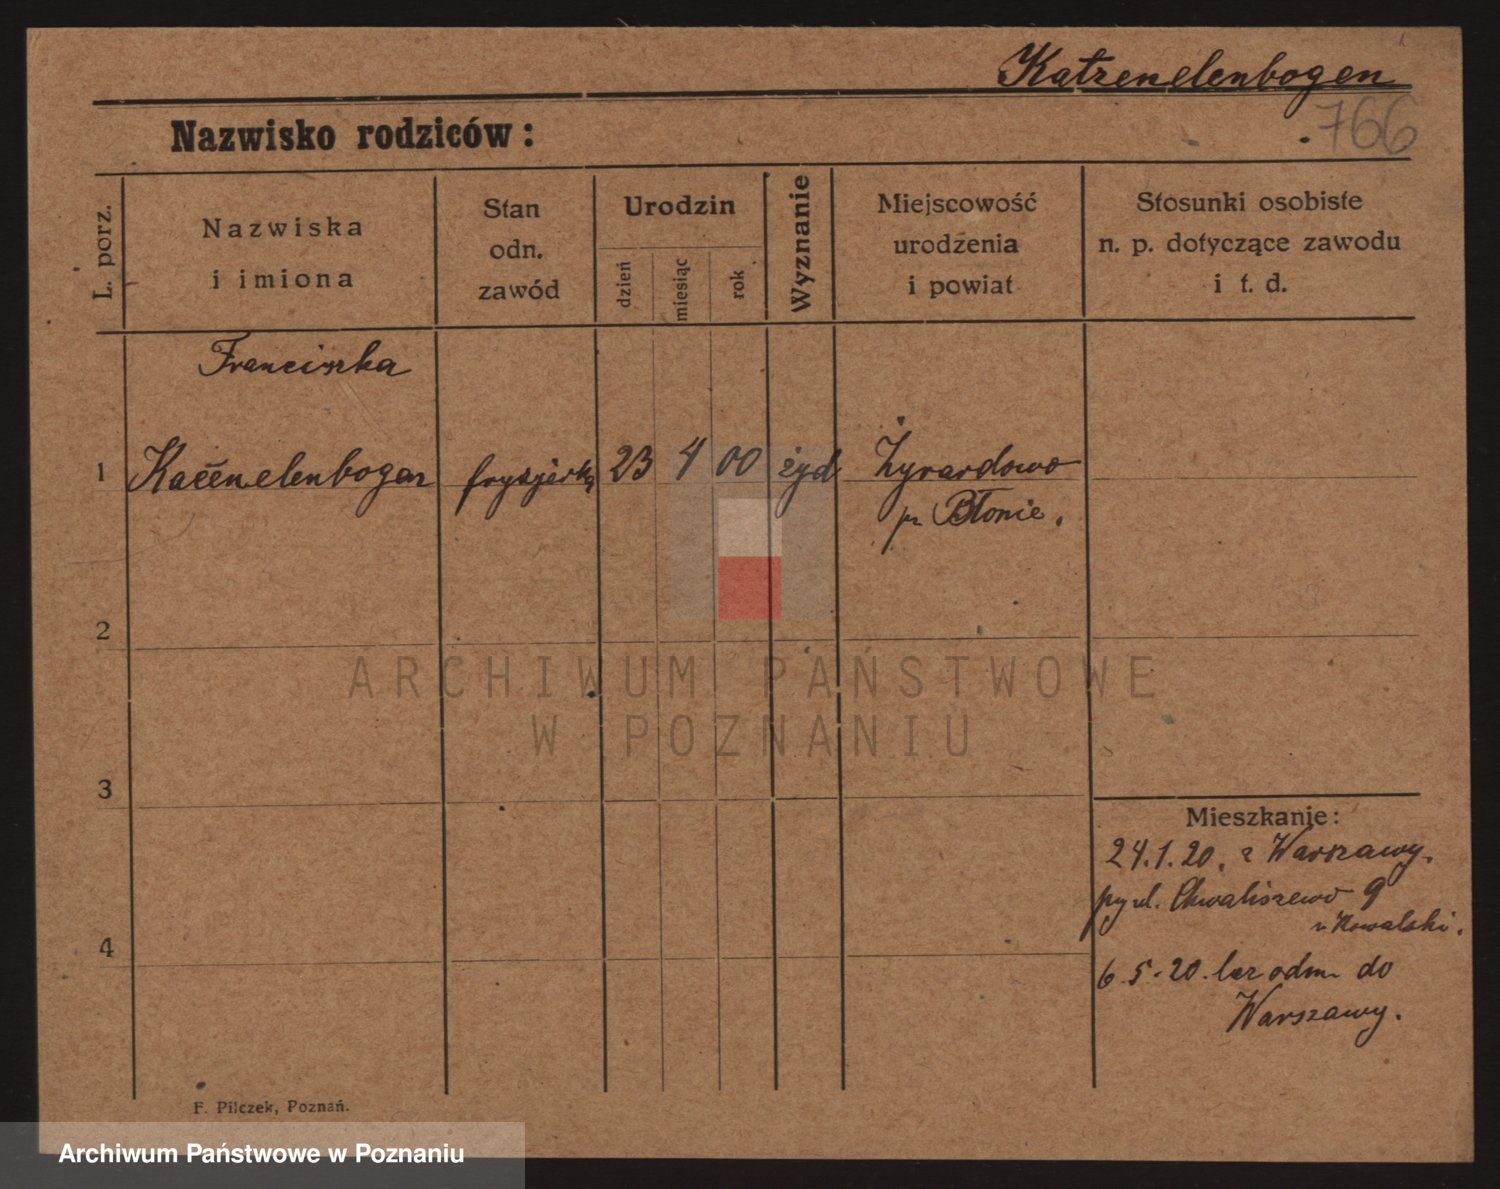 Katzenelenbogen
766
Nazwisko rodziców:
L. porz.
Nazwiska
i imiona
Stan
odn.
zawód
Urodzin
dzień
miesiąc
rok
Wyznanie
Miejscowość
urodzenia
i powiat
Stosunki osobiste
n. p. dotyczące zawodu
i t. d.
Franciszka
1
fryzjerka
23
4
00
żyd
Żyrardowo
Błonie.
2
ARCHIWUM PAŃSTWOWE
W POZNANIU
3
Mieszkanie:
24.1.20. z Warszawy.
ul. Chwaliszewo 9
Kowalski.
4
6.5.20. do
Warszawy.
F. Pilczek, Poznań.
Archiwum Państwowe w Poznaniu